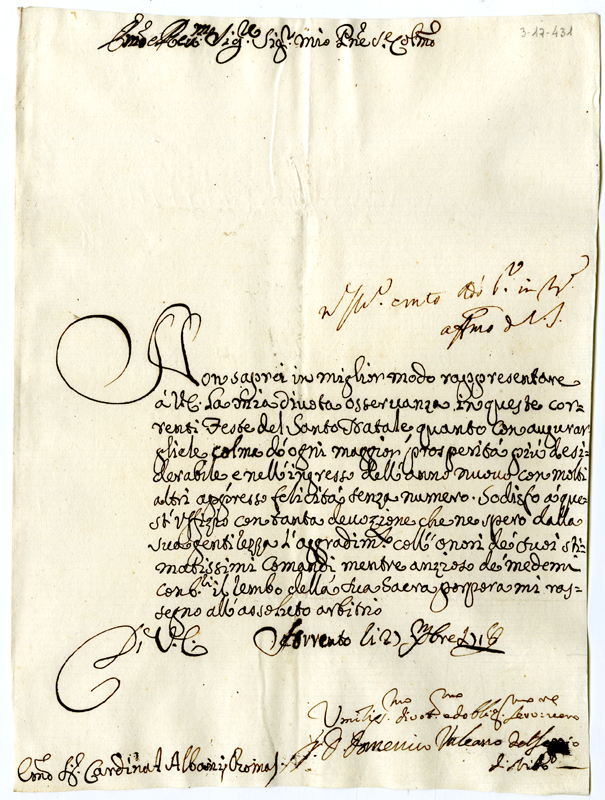 3-17-431
Em̃o e Reu.mo Sig.re Sig.r mio Pñe e Colmo
affmo di V.S.
Non saprei in miglior modo rappresentare
á V.E. La mia diuota osseruanza in queste cor-
renti Feste del Santo Natale quanto con augurar-
gliele colme d'ogni maggior prosperitá piú desi-
derabile e nell'ingresso dell'anno nuouo con molti
altri appresso felicitá senza numero. Sodisfo á que-
st'Uffizio con tanta deuozzione che ne spero dalla
sua gentilezza L'aggradim.to coll'onori de suoi sti-
matissimi Comandi mentre anzioso de medemi
con b. il lembo della sua Sacra porpora mi ras-
segno all'assoluto arbitrio
Di V.E. Sorrento li 27 Xbre 1718
Umiliss.mo diuot.mo ed obblig.mo seru: uero
D Domenico Vulcano del Seggio
di Nido
Em̃o Sig.r Cardinal Albani Roma